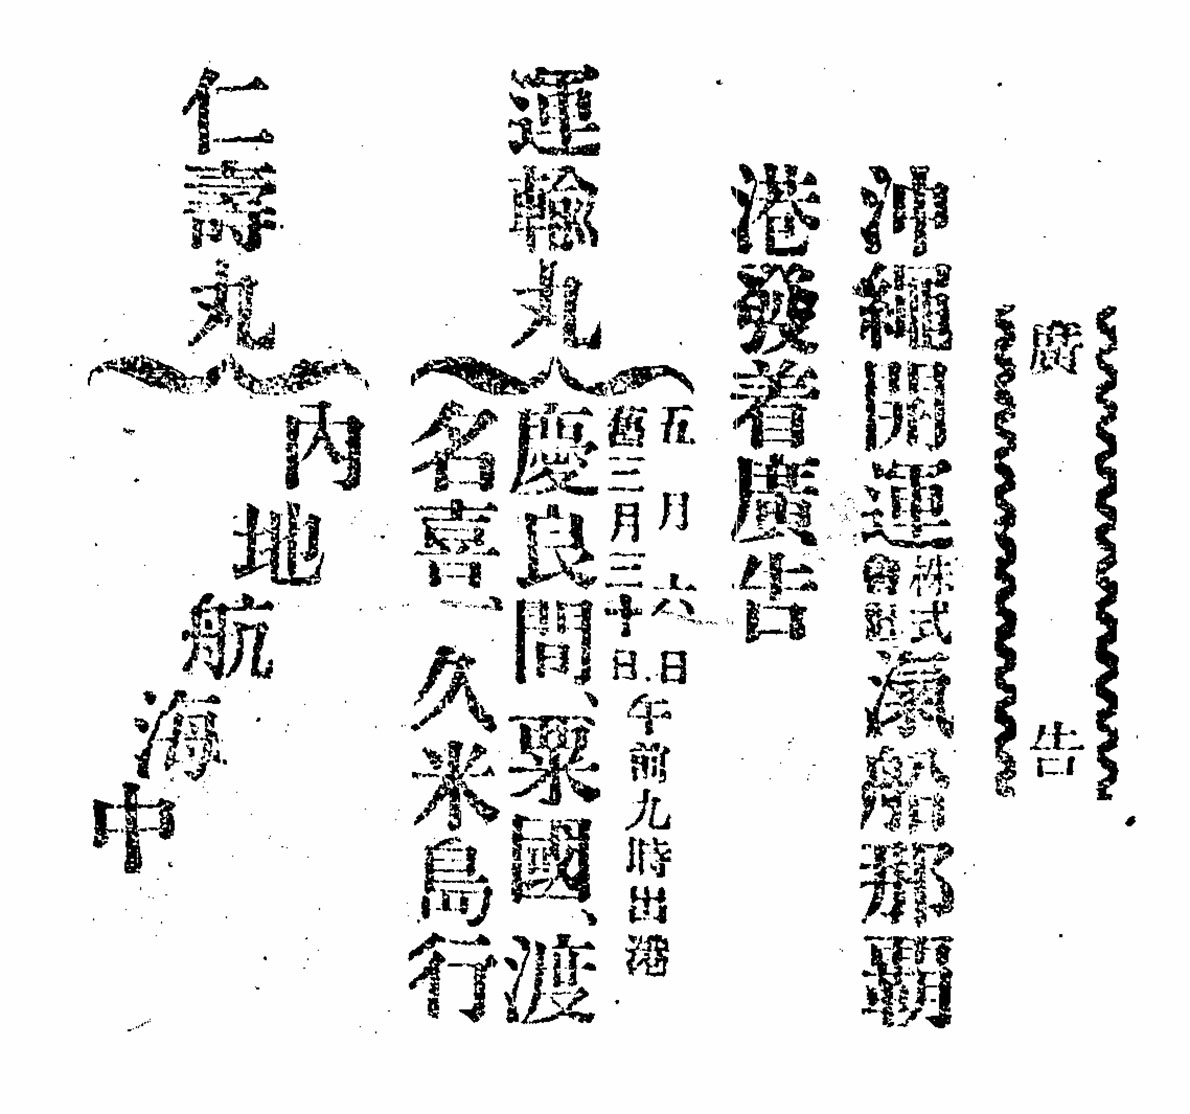 廣告
沖繩開運株式會社滊船那覇
港發着廣告
運輸丸
五月六日
舊三月三十日
午前九時出港
慶良間、粟國、渡
名喜、久米島行
仁壽丸
內地航海中